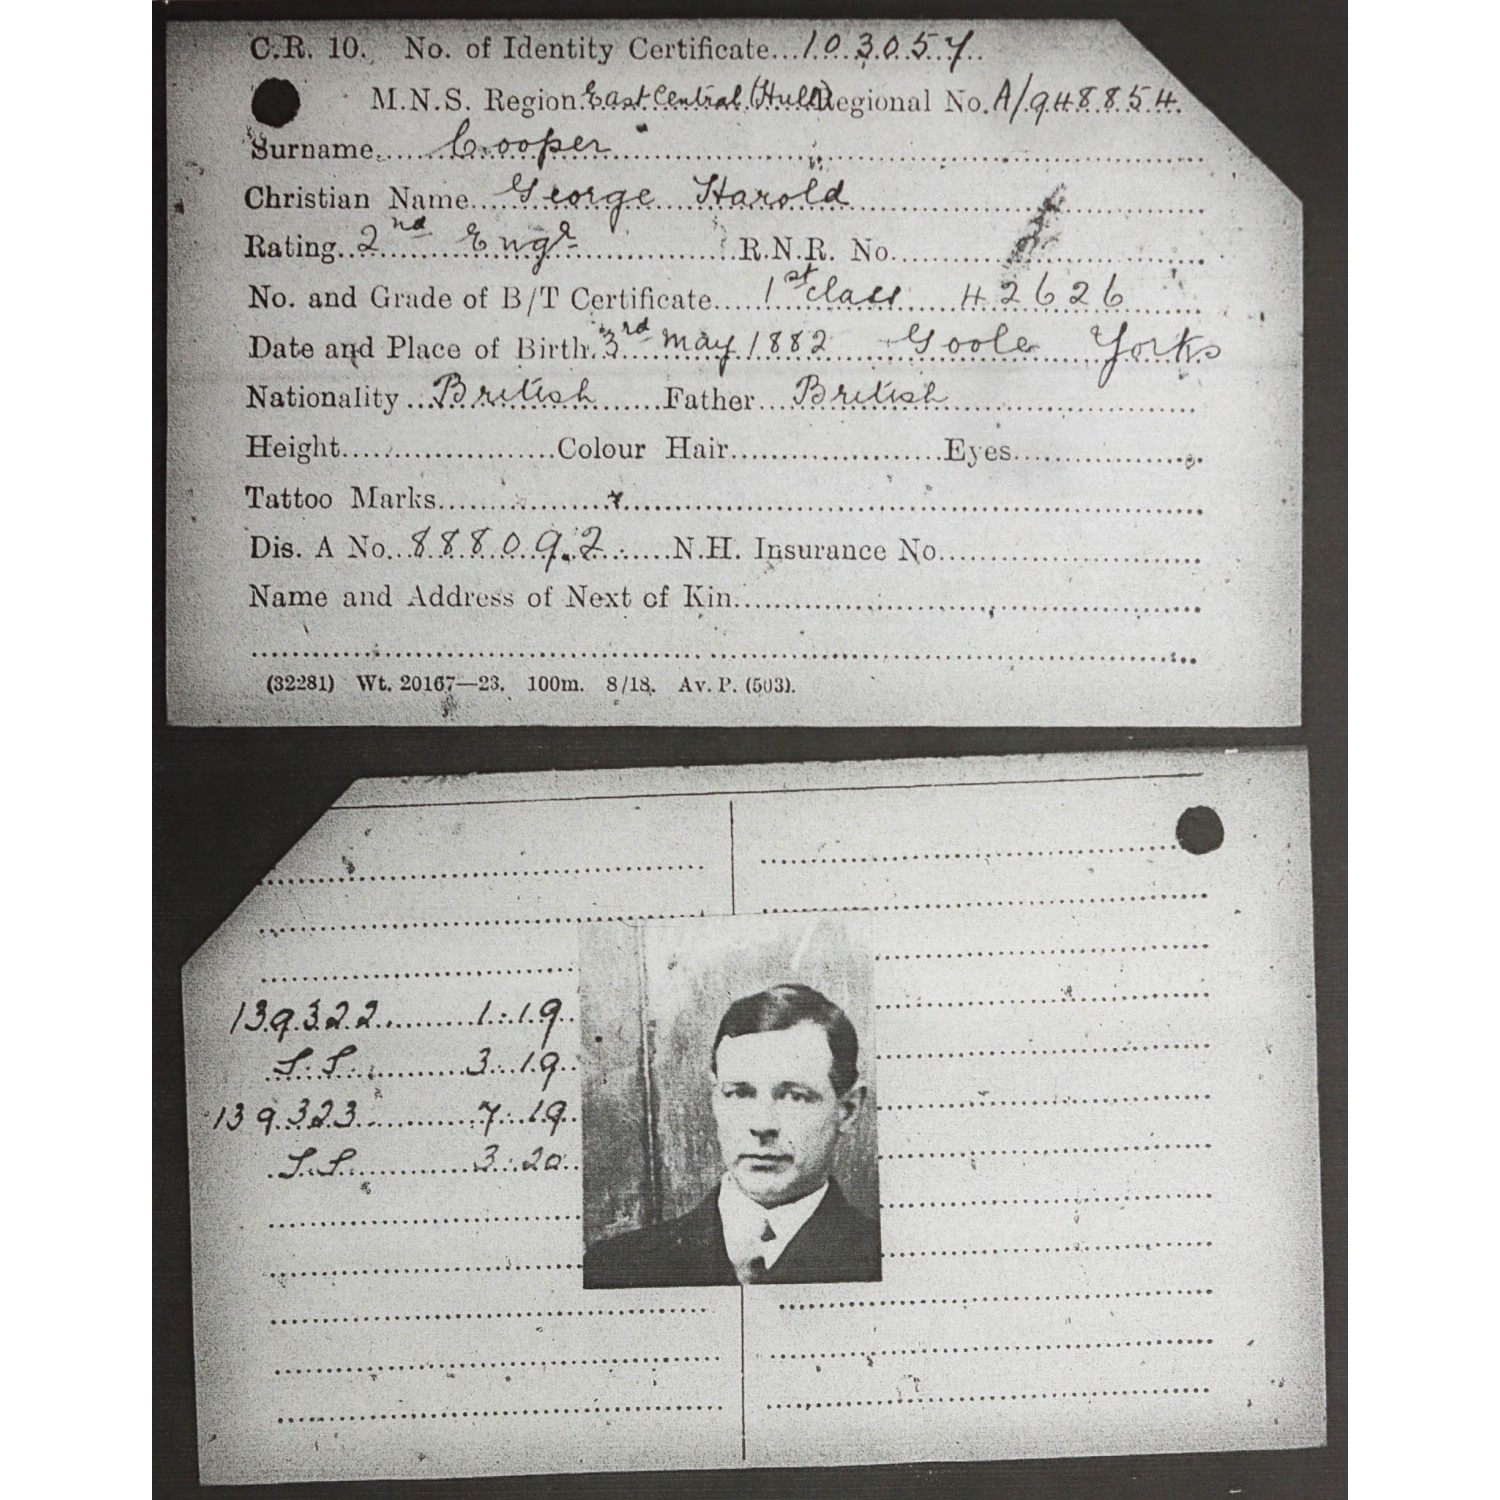 C.R. 10. No. of Identity Certificate...103057..
M.N.S. Region. East Central (Hull) Regional No. A/948854.
Surname.....Cooper
Christian Name....George Harold
Rating..2nd Engr R.N.R. No.
No. and Grade of B/T Certificate.....1st class 42626
Date and Place of Birth. 3rd May 1882 Goole Yorks
Nationality...British......Father...British
Height.....................Colour Hair.....................Eyes
Tattoo Marks
Dis. A No. 888092 N.H. Insurance No.
Name and Address of Next of Kin
(32281) Wt. 20167—23. 100m. 8/18. Av. P. (503).
139322 1.19
S.S. 3.19
139323 7.19
S.S. 3.20